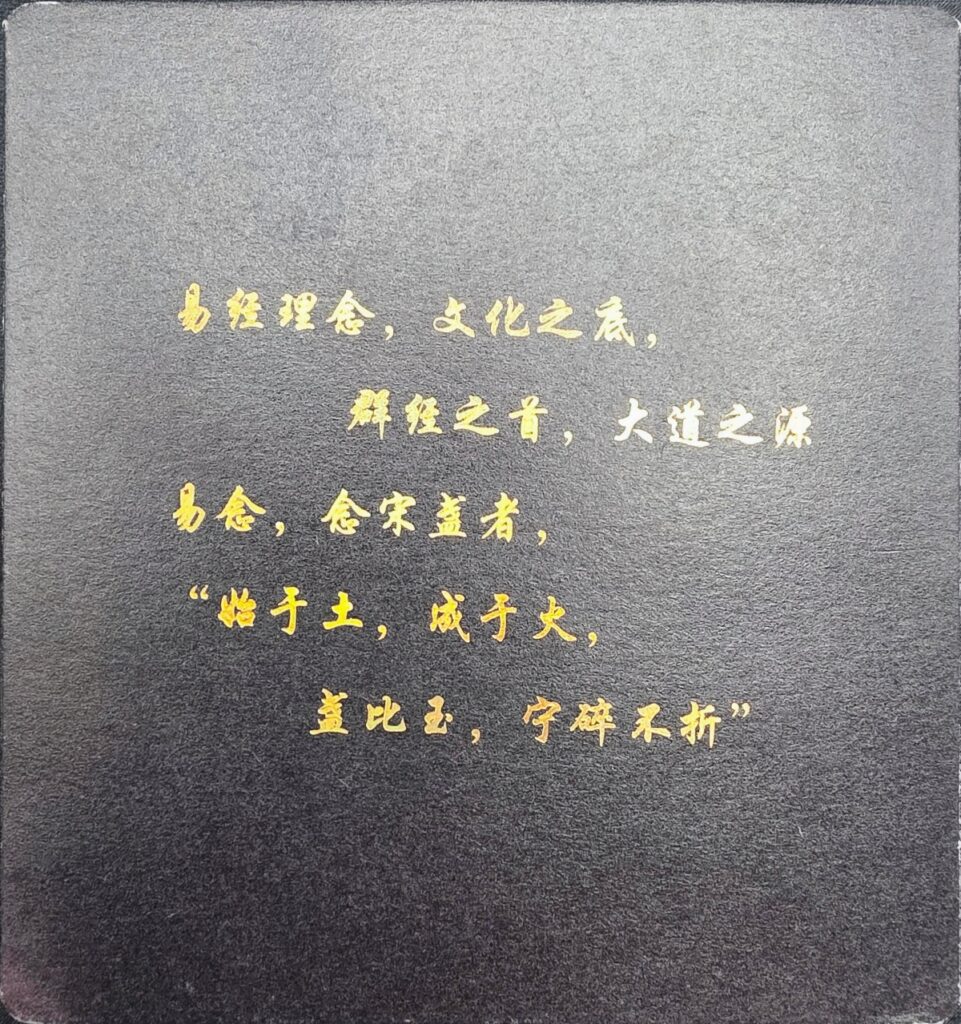 易经理念，文化之底，
群经之首，大道之源
易念，念宋盏者，
“始于土，成于火，
盏比玉，宁碎不折”